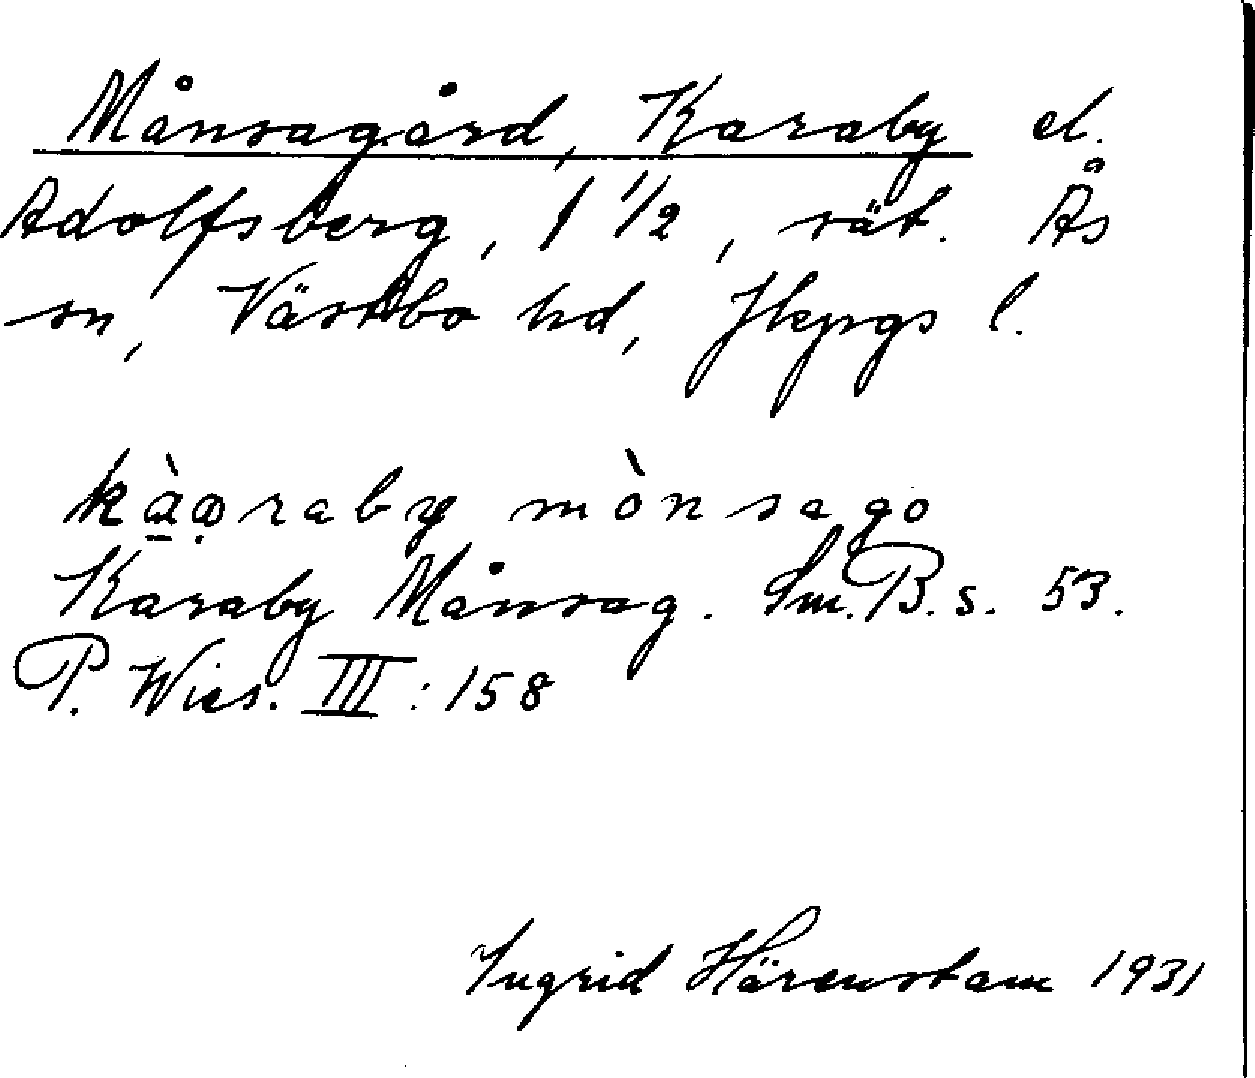 Månsagård, Karaby el.
Adolfsberg, 1 1/2, rät. Ås
sn, Västbo hd, Jkpgs l.
kàaraby mònsago
Karaby Månsag. Sm. B. s. 53.
P. Wies. III : 158
Ingrid Härenstam 1931